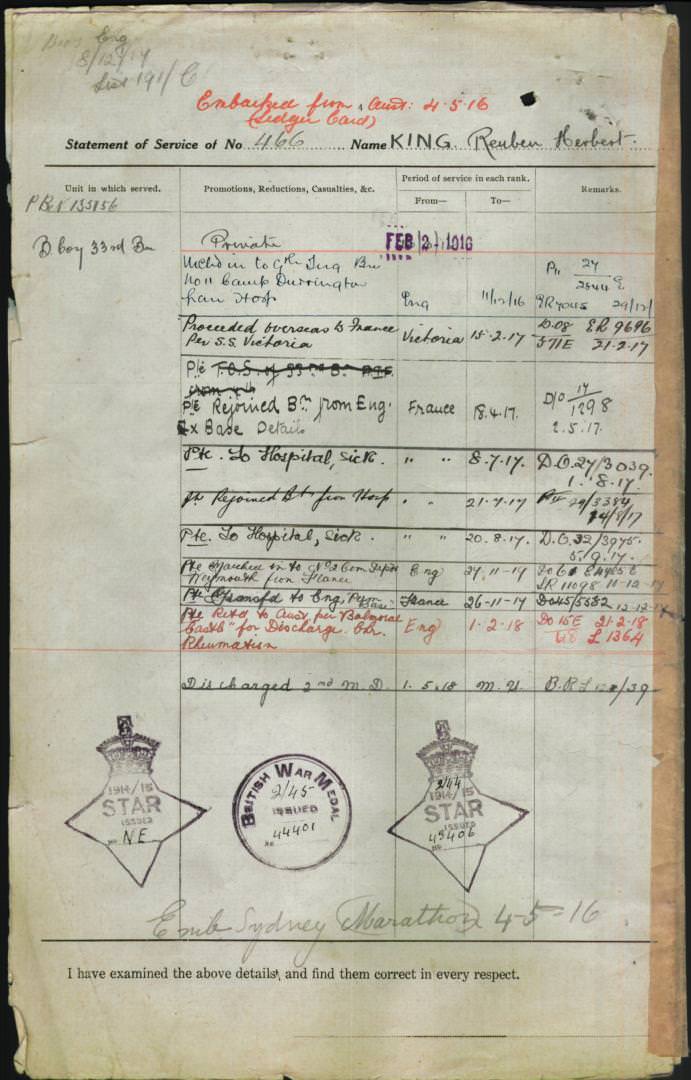 Eng
8/12/17
List 191/C
Embarked from Aust: 4.5.16
(Ledger Card)
Statement of Service of No 466 Name KING. Reuben Herbert.
Unit in which served. Promotions, Reductions, Casualties, &c. Period of service in each rank. Remarks.
From— To—
D. Coy 33rd Bn Private FEB 2 1916
M'ch'd in to 9th Trng Bn
No 11 Camp Durrington
from Hosp Eng 11/12/16
Proceeded overseas to France D.08 ER 9696
Per S.S. Victoria Victoria 15.2.17. 571E 21.2.17
P/e T.O.S. of 33rd Bn
from 9th
P/e Rejoined Bn from Eng. France 18.4.17. D/O 17/1298
Ex Base Details 2.5.17.
Pte. To Hospital, Sick. " " 8.7.17. D.O.27/3039.
1. 8.17.
Pte Rejoined Bn from Hosp " " 21.7.17 29/3384
14/8/17
Pte. To Hospital, Sick. " " 20.8.17. D.O.32/3975.
5.9.17.
Pte Marched in to No 2 Com Depot Eng 27.11.17
Weymouth from France 11098 11-12-17
Pte Transfd to Eng, Perm Base France 26-11-17 Do45/5582 12-12-17
Pte Retd to Aust per "Balmoral Do 15E 21-2-18
Castle" for Discharge. Chr. Eng 1.2.18 L 1364
Rheumatism
Discharged 2nd M.D. 1.5.18 M.U.
1914/15
STAR
ISSUED
No NE
BRITISH WAR MEDAL
2/45
ISSUED
No 44401
2/44
1914/15
STAR
ISSUED
No 43406
Emb Sydney (Marathon) 4-5-16
I have examined the above details, and find them correct in every respect.